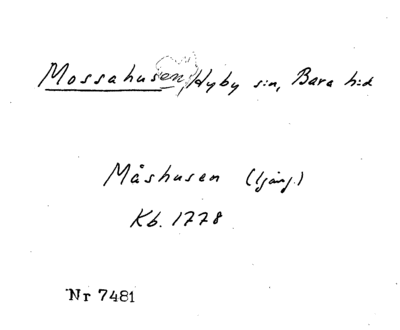 Mossahusen, Hyby sn, Bara hd
Måshusen (1 gång.)
Kb. 1778
Nr 7481